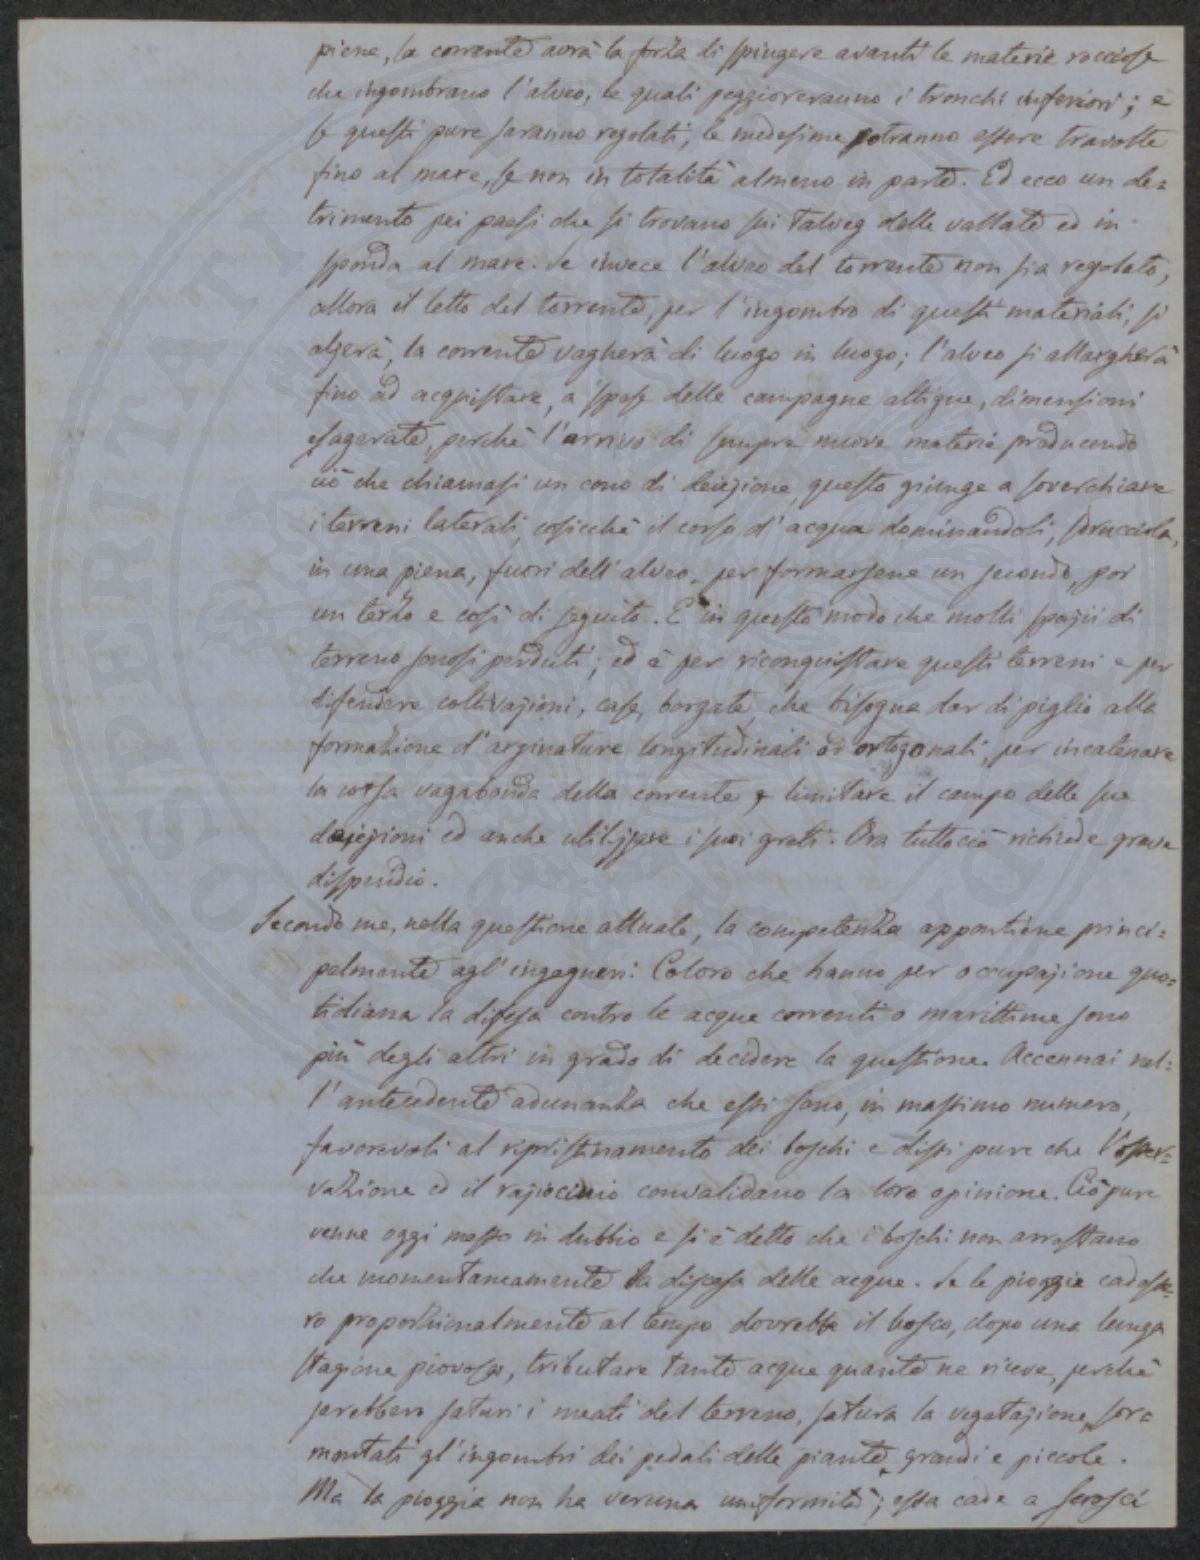 piene, la corrente avrà la forza di spingere avanti le materie rocciose
che ingombrano l'alveo, le quali peggioreranno i tronchi inferiori; e
se questi pure saranno regolati, le medesime potranno essere travolte
fino al mare, se non in totalità almeno in parte. Ed ecco un de=
trimento pei paesi che si trovano sui Talveg delle vallate ed in
sponda al mare. Se invece l'alveo del torrente non sia regolato,
allora il letto del torrente, per l'ingombro di questi materiali, si
alzerà, la corrente vagherà di luogo in luogo; l'alveo si allargherà
fino ad acquistare, a spese delle campagne attigue, dimensioni
esagerate, perchè l'arrivo di sempre nuove materie producendo
ciò che chiamasi un cono di deiezione, questo giunge a soverchiare
i terreni laterali, cosicchè il corso d'acqua dominandoli, sdrucciola,
in una piena, fuori dell'alveo, per formarsene un secondo, poi
un terzo e così di seguito. E in questo modo che molti spazii di
terreno sonosi perduti; ed è per riconquistare questi terreni e per
difendere coltivazioni, case, borgate, che bisogna dar di piglio alla
formazione d'arginature longitudinali od ortogonali, per incatenare
la corsa vagabonda della corrente e limitare il campo delle sue
deiezioni ed anche utilizzare i suoi greti. Ora tutto ciò richiede grave
dispendio.
Secondo me, nella questione attuale, la competenza appartiene princi=
palmente agl'ingegneri. Coloro che hanno per occupazione quo=
tidiana la difesa contro le acque correnti o marittime sono
più degli altri in grado di decidere la questione. Accennai nel=
l'antecedente adunanza che essi sono, in massimo numero,
favorevoli al ripristinamento dei boschi e dissi pure che l'osser=
vazione ed il raziocinio convalidano la loro opinione. Ciò pure
venne oggi messo in dubbio e si è detto che i boschi non arrestano
che momentaneamente la discesa delle acque. Se le pioggie cadesse=
ro proporzionalmente al tempo dovrebbe il bosco, dopo una lunga
stagione piovosa, tributare tante acque quante ne riceve, perchè
sarebbero saturi i meati del terreno, satura la vegetazione, sor=
montati gl'ingombri dei pedali delle piante grandi e piccole.
Ma la pioggia non ha veruna uniformità; essa cade a scrosci